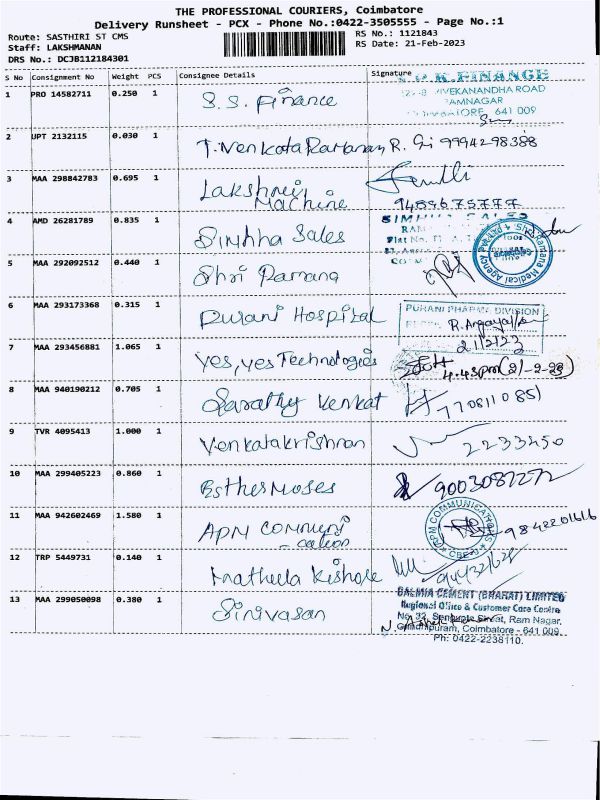 THE PROFESSIONAL COURIERS, Coimbatore
Delivery Runsheet - PCX - Phone No.:0422-3505555 - Page No.:1
Route: SASTHIRI ST CMS
Staff: LAKSHMANAN
DRS No.: DCJB112184301
RS No.: 1121843
RS Date: 21-Feb-2023
S No Consignment No Weight PCS Consignee Details Signature
FINANCE
VIVEKANANDHA ROAD
RAMNAGAR
COIMBATORE 641 009
1 PRO 14582711 0.250 1 S.S. Finance
2 UPT 2132115 0.030 1 T. Venkata Ramanan R. 9994298388
3 MAA 298842783 0.695 1 Lakshmi
Machine
4 AMD 26281789 0.835 1 Simhha Sales
SALES
Medical Agency
5 MAA 292092512 0.440 1 Shri Ramana
6 MAA 293173368 0.315 1 Purani Hospital
PURANI PHARMA DIVISION
21/2/23
7 MAA 293456881 1.065 1 yes, yes Technologies
4.43pm
8 MAA 940190212 0.705 1 Sarathy Venkat 7708110851
9 TVR 4095413 1.000 1 Venkatakrishnan 2233450
10 MAA 299405223 0.860 1 Esther Moses
11 MAA 942602469 1.580 1 APM Communi
-cation
APM COMMUNICATIONS
CBE
9842201616
12 TRP 5449731 0.140 1 Kishore
13 MAA 299050098 0.380 1 Sinivasan
DALMIA CEMENT (BHARAT) LIMITED
Regional Office & Customer Care Centre
No. 32, Ram Nagar,
Gandhipuram, Coimbatore - 641 009.
Ph: 0422-2238110.